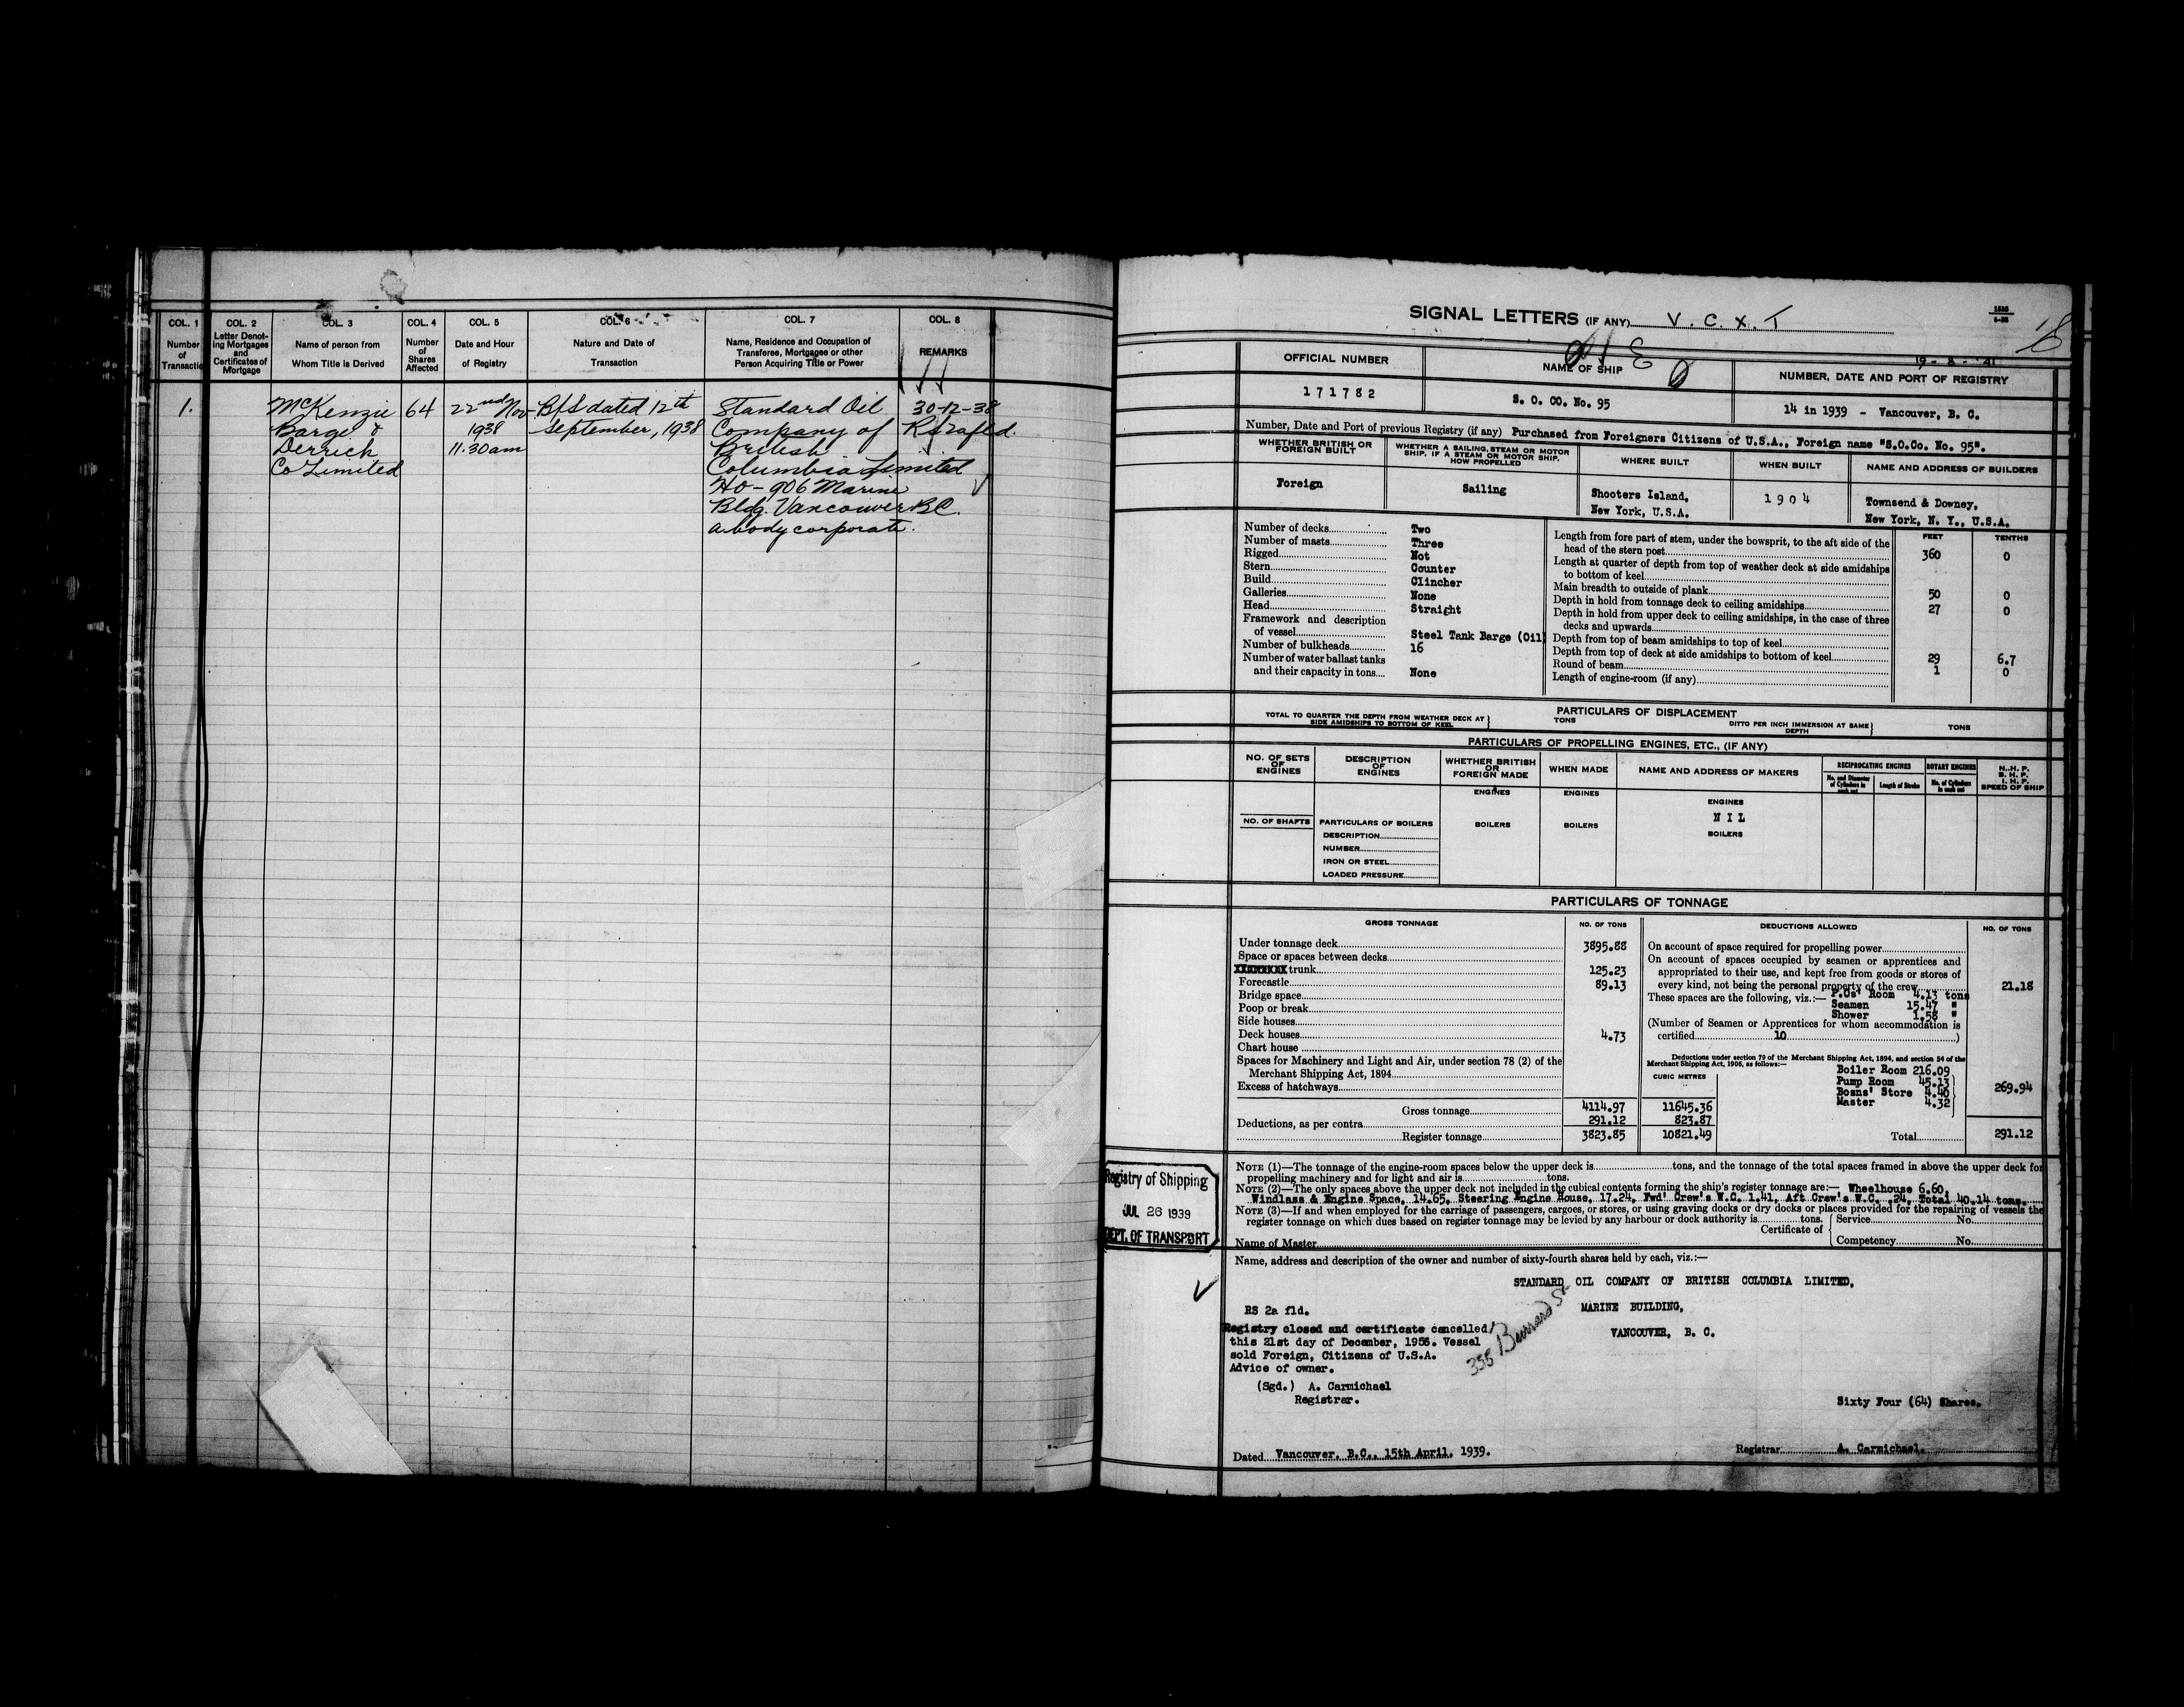 COL. 1 COL. 2 COL. 3 COL. 4 COL. 5 COL. 6 COL. 7 COL. 8
Number of Transaction
Letter Denoting Mortgages and Certificates of Mortgage
Name of person from Whom Title is Derived
Number of Shares Affected
Date and Hour of Registry
Nature and Date of Transaction
Name, Residence and Occupation of Transferee, Mortgagee or other Person Acquiring Title or Power
REMARKS
1. McKenzie 64 22nd Nov B/S dated 12th Standard Oil 30-12-38
Barge & 1938 September, 1938 Company of
Derrick 11.30am British
Co Limited Columbia Limited
HO - 906 Marine
Bldg. Vancouver BC.
a body corporate.
SIGNAL LETTERS (IF ANY) V. C. X. T
18
1535
4-38
19-8-'41
OFFICIAL NUMBER NAME OF SHIP NUMBER, DATE AND PORT OF REGISTRY
171782 S. O. CO. No. 95 14 in 1939 - Vancouver, B. C.
Number, Date and Port of previous Registry (if any) Purchased from Foreigners Citizens of U.S.A., Foreign name "S.O.Co. No. 95".
WHETHER BRITISH OR FOREIGN BUILT
WHETHER A SAILING, STEAM OR MOTOR SHIP, IF A STEAM OR MOTOR SHIP, HOW PROPELLED
WHERE BUILT
WHEN BUILT
NAME AND ADDRESS OF BUILDERS
Foreign Sailing Shooters Island, 1904 Townsend & Downey,
New York, U.S.A. New York, N. Y., U.S.A.
Number of decks Two
Number of masts Three
Rigged Not
Stern Counter
Build Clincher
Galleries None
Head Straight
Framework and description
of vessel Steel Tank Barge (Oil)
Number of bulkheads 16
Number of water ballast tanks
and their capacity in tons None
FEET TENTHS
Length from fore part of stem, under the bowsprit, to the aft side of the
head of the stern post 360 0
Length at quarter of depth from top of weather deck at side amidships
to bottom of keel
Main breadth to outside of plank 50 0
Depth in hold from tonnage deck to ceiling amidships 27 0
Depth in hold from upper deck to ceiling amidships, in the case of three
decks and upwards
Depth from top of beam amidships to top of keel
Depth from top of deck at side amidships to bottom of keel 29 6.7
Round of beam 1 0
Length of engine-room (if any)
PARTICULARS OF DISPLACEMENT
TOTAL TO QUARTER THE DEPTH FROM WEATHER DECK AT SIDE AMIDSHIPS TO BOTTOM OF KEEL TONS
DITTO PER INCH IMMERSION AT SAME DEPTH TONS
PARTICULARS OF PROPELLING ENGINES, ETC., (IF ANY)
NO. OF SETS OF ENGINES
DESCRIPTION OF ENGINES
WHETHER BRITISH OR FOREIGN MADE
WHEN MADE
NAME AND ADDRESS OF MAKERS
RECIPROCATING ENGINES
No. and Diameter of Cylinders in each set
Length of Stroke
ROTARY ENGINES
No. of Cylinders in each set
N.H.P.
B.H.P.
I.H.P.
SPEED OF SHIP
ENGINES ENGINES ENGINES
N I L
NO. OF SHAFTS PARTICULARS OF BOILERS BOILERS BOILERS BOILERS
DESCRIPTION
NUMBER
IRON OR STEEL
LOADED PRESSURE
PARTICULARS OF TONNAGE
GROSS TONNAGE NO. OF TONS
Under tonnage deck 3895.88
Space or spaces between decks
XXXXXXXX trunk 125.23
Forecastle 89.13
Bridge space
Poop or break
Side houses
Deck houses 4.73
Chart house
Spaces for Machinery and Light and Air, under section 78 (2) of the
Merchant Shipping Act, 1894
Excess of hatchways
CUBIC METRES
Gross tonnage 4114.97 11645.36
Deductions, as per contra 291.12 823.87
Register tonnage 3823.85 10821.49
DEDUCTIONS ALLOWED NO. OF TONS
On account of space required for propelling power
On account of spaces occupied by seamen or apprentices and
appropriated to their use, and kept free from goods or stores of
every kind, not being the personal property of the crew 21.18
These spaces are the following, viz.:— P.Os' Room 4.13 tons
Seamen 15.47 "
Shower 1.58 "
(Number of Seamen or Apprentices for whom accommodation is
certified 10 )
Deductions under section 79 of the Merchant Shipping Act, 1894, and section 54 of the
Merchant Shipping Act, 1906, as follows:—
Boiler Room 216.09
Pump Room 45.13
Bosns' Store 4.40
Master 4.32
269.94
Total 291.12
NOTE (1)—The tonnage of the engine-room spaces below the upper deck is tons, and the tonnage of the total spaces framed in above the upper deck for
propelling machinery and for light and air is tons.
NOTE (2)—The only spaces above the upper deck not included in the cubical contents forming the ship's register tonnage are:— Wheelhouse 6.60,
Windlass & Engine Space, 14.65, Steering Engine House, 17.24, Fwd' Crew's W.C. 1.41, Aft Crew's W.C. .24, Total 40.14 tons.
NOTE (3)—If and when employed for the carriage of passengers, cargoes, or stores, or using graving docks or dry docks or places provided for the repairing of vessels the
register tonnage on which dues based on register tonnage may be levied by any harbour or dock authority is tons.
Certificate of Service No.
Competency No.
Name of Master
Registry of Shipping
JUL 26 1939
DEPT. OF TRANSPORT
Name, address and description of the owner and number of sixty-fourth shares held by each, viz.:—
STANDARD OIL COMPANY OF BRITISH COLUMBIA LIMITED,
MARINE BUILDING,
VANCOUVER, B. C.
355 Burrard St
RS 2a fld.
Registry closed and certificate cancelled
this 21st day of December, 1956. Vessel
sold Foreign, Citizens of U.S.A.
Advice of owner.
(Sgd.) A. Carmichael
Registrar.
Sixty Four (64) Shares.
Dated Vancouver, B.C., 15th April, 1939.
Registrar A. Carmichael.